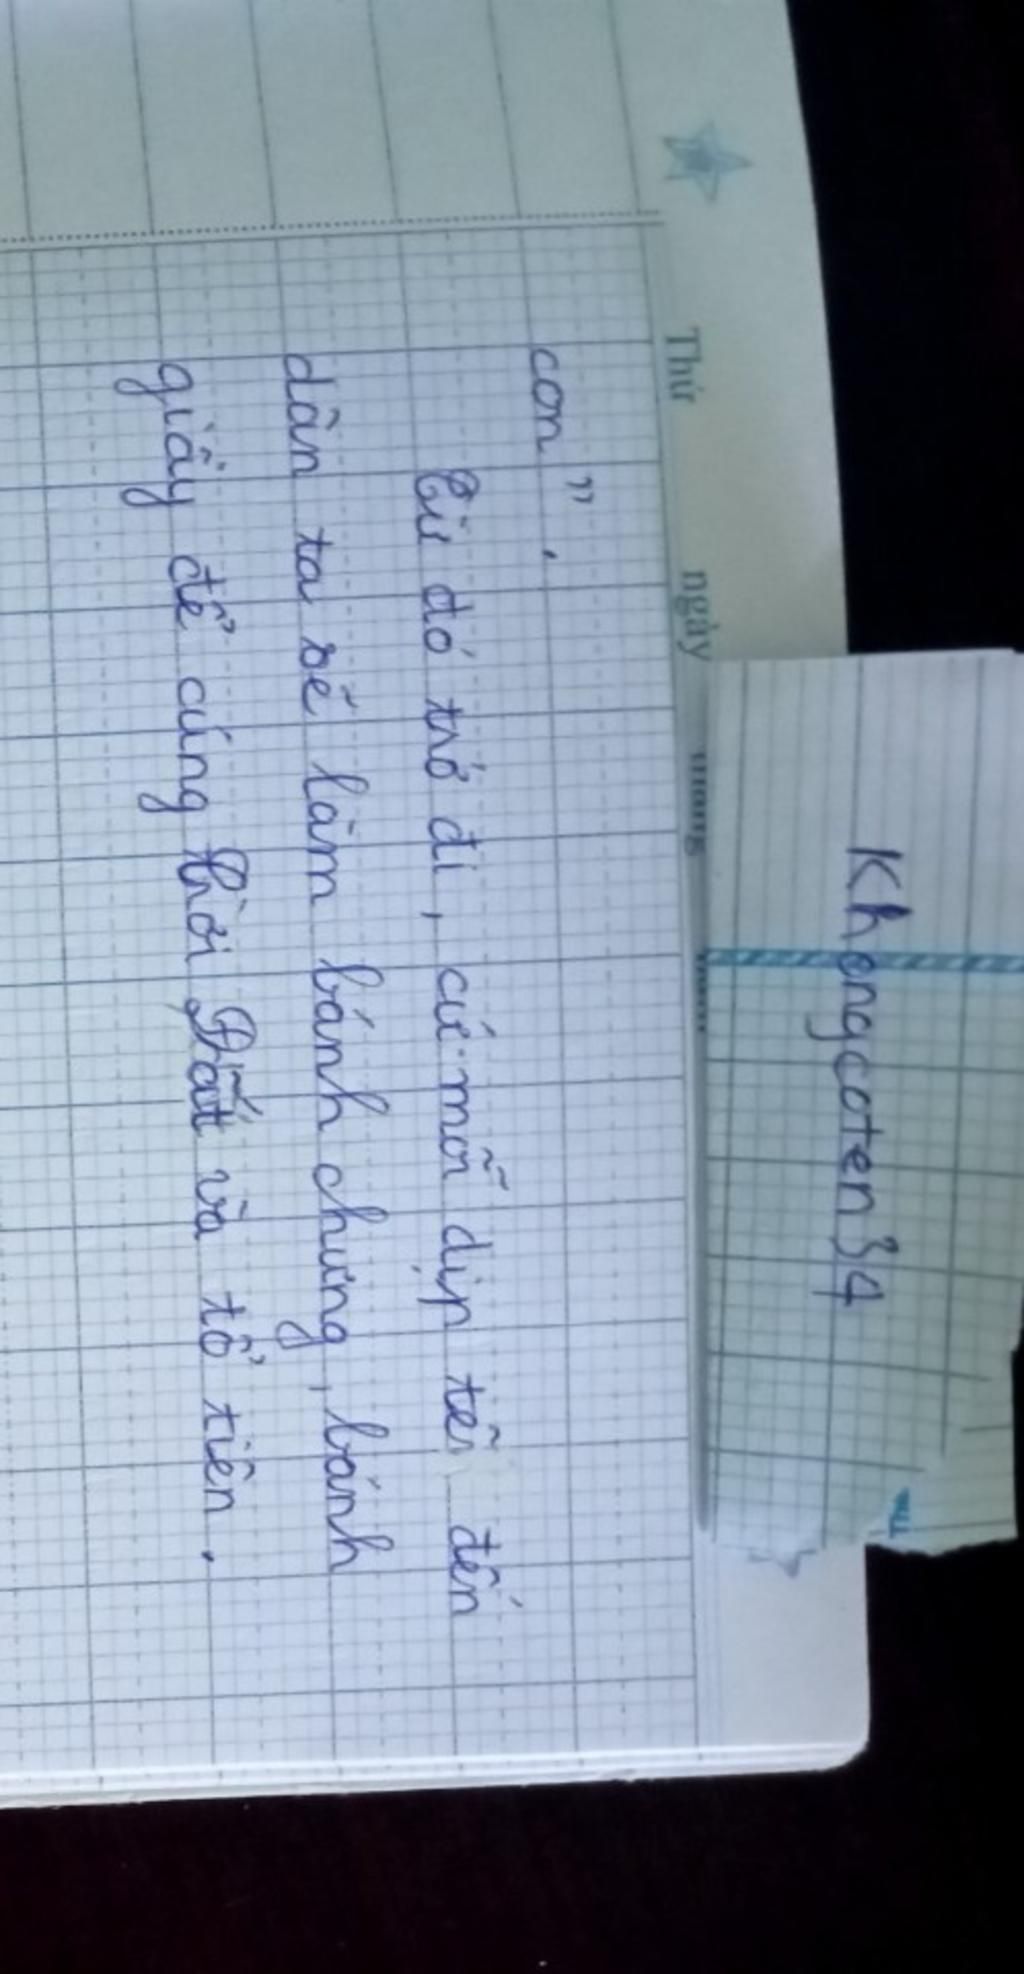 Thứ ngày tháng năm
Khongcoten34
con".
Từ đó trở đi, cứ mỗi dịp tết đến
dân ta sẽ làm bánh chưng, bánh
giầy để cúng Trời Đất và tổ tiên.